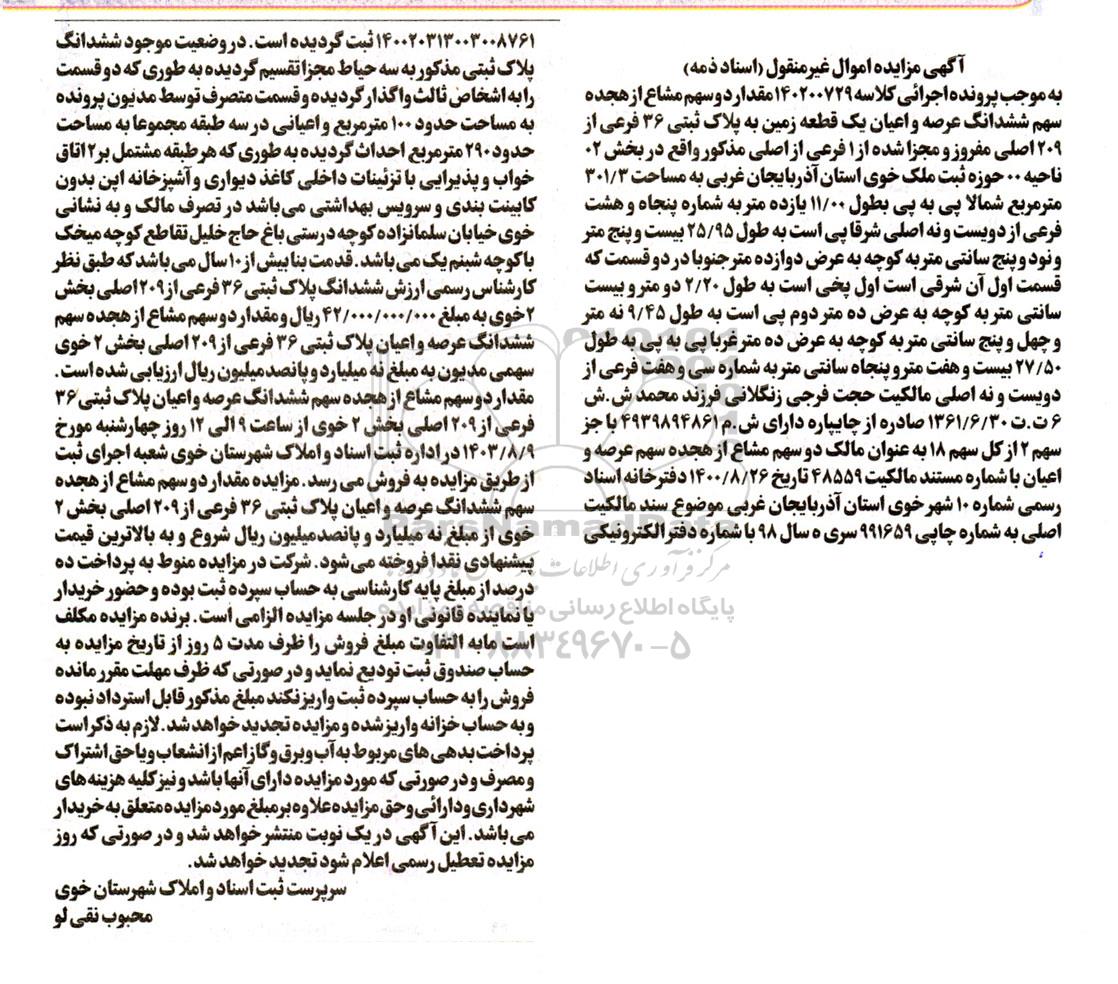 آگهی مزایده اموال غیرمنقول (اسناد ذمه)
به موجب پرونده اجرائی کلاسه ۱۴۰۲۰۰۷۲۹ مقدار دو سهم مشاع از هجده
سهم ششدانگ عرصه و اعیان یک قطعه زمین به پلاک ثبتی ۳۶ فرعی از
۲۰۹ اصلی مفروز و مجزا شده از ۱ فرعی از اصلی مذکور واقع در بخش ۰۲
ناحیه ۰۰ حوزه ثبت ملک خوی استان آذربایجان غربی به مساحت ۳۰۱/۳
مترمربع شمالا پی به پی بطول ۱۱/۰۰ یازده متر به شماره پنجاه و هشت
فرعی از دویست و نه اصلی شرقا پی است به طول ۲۵/۹۵ بیست و پنج متر
و نود و پنج سانتی متر به کوچه به عرض دوازده متر جنوبا در دو قسمت که
قسمت اول آن شرقی است اول پخی است به طول ۲/۲۰ دو متر و بیست
سانتی متر به کوچه به عرض ده متر دوم پی است به طول ۹/۴۵ نه متر
و چهل و پنج سانتی متر به کوچه به عرض ده متر غربا پی به پی به طول
۲۷/۵۰ بیست و هفت متر و پنجاه سانتی متر به شماره سی و هفت فرعی از
دویست و نه اصلی مالکیت حجت فرجی زنگلانی فرزند محمد ش.ش
۶ ت.ت ۱۳۶۱/۶/۳۰ صادره از چایپاره دارای ش.م ۴۹۳۹۸۹۴۸۶۱ با جز
سهم ۲ از کل سهم ۱۸ به عنوان مالک دو سهم مشاع از هجده سهم عرصه و
اعیان با شماره مستند مالکیت ۴۸۵۵۹ تاریخ ۱۴۰۰/۸/۲۶ دفترخانه اسناد
رسمی شماره ۱۰ شهر خوی استان آذربایجان غربی موضوع سند مالکیت
اصلی به شماره چاپی ۹۹۱۶۵۹ سری ه سال ۹۸ با شماره دفتر الکترونیکی
۱۴۰۰۲۰۳۱۳۰۰۳۰۰۸۷۶۱ ثبت گردیده است. در وضعیت موجود ششدانگ
پلاک ثبتی مذکور به سه حیاط مجزا تقسیم گردیده به طوری که دو قسمت
را به اشخاص ثالث واگذار گردیده و قسمت متصرف توسط مدیون پرونده
به مساحت حدود ۱۰۰ مترمربع و اعیانی در سه طبقه مجموعا به مساحت
حدود ۲۹۰ مترمربع احداث گردیده به طوری که هر طبقه مشتمل بر ۲ اتاق
خواب و پذیرایی با تزئینات داخلی کاغذ دیواری و آشپزخانه اپن بدون
کابینت بندی و سرویس بهداشتی می باشد در تصرف مالک و به نشانی
خوی خیابان سلمانزاده کوچه درستی باغ حاج خلیل تقاطع کوچه میخک
با کوچه شبنم یک می باشد. قدمت بنا بیش از ۱۰ سال می باشد که طبق نظر
کارشناس رسمی ارزش ششدانگ پلاک ثبتی ۳۶ فرعی از ۲۰۹ اصلی بخش
۲ خوی به مبلغ ۴۲/۰۰۰/۰۰۰/۰۰۰ ریال و مقدار دو سهم مشاع از هجده سهم
ششدانگ عرصه و اعیان پلاک ثبتی ۳۶ فرعی از ۲۰۹ اصلی بخش ۲ خوی
سهمی مدیون به مبلغ نه میلیارد و پانصد میلیون ریال ارزیابی شده است.
مقدار دو سهم مشاع از هجده سهم ششدانگ عرصه و اعیان پلاک ثبتی ۳۶
فرعی از ۲۰۹ اصلی بخش ۲ خوی از ساعت ۹ الی ۱۲ روز چهارشنبه مورخ
۱۴۰۳/۸/۹ در اداره ثبت اسناد و املاک شهرستان خوی شعبه اجرای ثبت
از طریق مزایده به فروش می رسد. مزایده مقدار دو سهم مشاع از هجده
سهم ششدانگ عرصه و اعیان پلاک ثبتی ۳۶ فرعی از ۲۰۹ اصلی بخش ۲
خوی از مبلغ نه میلیارد و پانصد میلیون ریال شروع و به بالاترین قیمت
پیشنهادی نقدا فروخته می شود. شرکت در مزایده منوط به پرداخت ده
درصد از مبلغ پایه کارشناسی به حساب سپرده ثبت بوده و حضور خریدار
یا نماینده قانونی او در جلسه مزایده الزامی است. برنده مزایده مکلف
است مابه التفاوت مبلغ فروش را ظرف مدت ۵ روز از تاریخ مزایده به
حساب صندوق ثبت تودیع نماید و در صورتی که ظرف مهلت مقرر مانده
فروش را به حساب سپرده ثبت واریز نکند مبلغ مذکور قابل استرداد نبوده
و به حساب خزانه واریز شده و مزایده تجدید خواهد شد. لازم به ذکر است
پرداخت بدهی های مربوط به آب و برق و گاز اعم از انشعاب و یا حق اشتراک
و مصرف و در صورتی که مورد مزایده دارای آنها باشد و نیز کلیه هزینه های
شهرداری و دارائی و حق مزایده علاوه بر مبلغ مورد مزایده متعلق به خریدار
می باشد. این آگهی در یک نوبت منتشر خواهد شد و در صورتی که روز
مزایده تعطیل رسمی اعلام شود تجدید خواهد شد.
سرپرست ثبت اسناد و املاک شهرستان خوی
محبوب نقی لو
ParsNamadData
مرکز فرآوری اطلاعات
پایگاه اطلاع رسانی مناقصه و مزایده
۸۸۳۴۹۶۷۰-۵